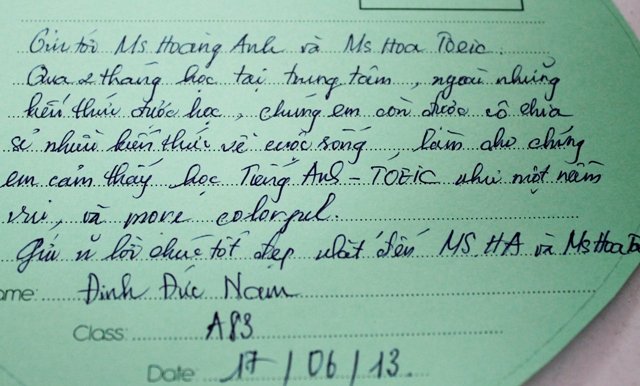 Gửi tới Ms Hoàng Anh và Ms Hoa Toeic.
Qua 2 tháng học tại trung tâm, ngoài những
kiến thức được học, chúng em còn được cô chia
sẻ nhiều kiến thức về cuộc sống, làm cho chúng
em cảm thấy học Tiếng Anh - TOEIC như một niềm
vui, và more colorful.
Gửi lời chúc tốt đẹp nhất đến MS HA và Ms Hoa
ame: Đinh Đức Nam
Class: A83
Date: 17/06/13.